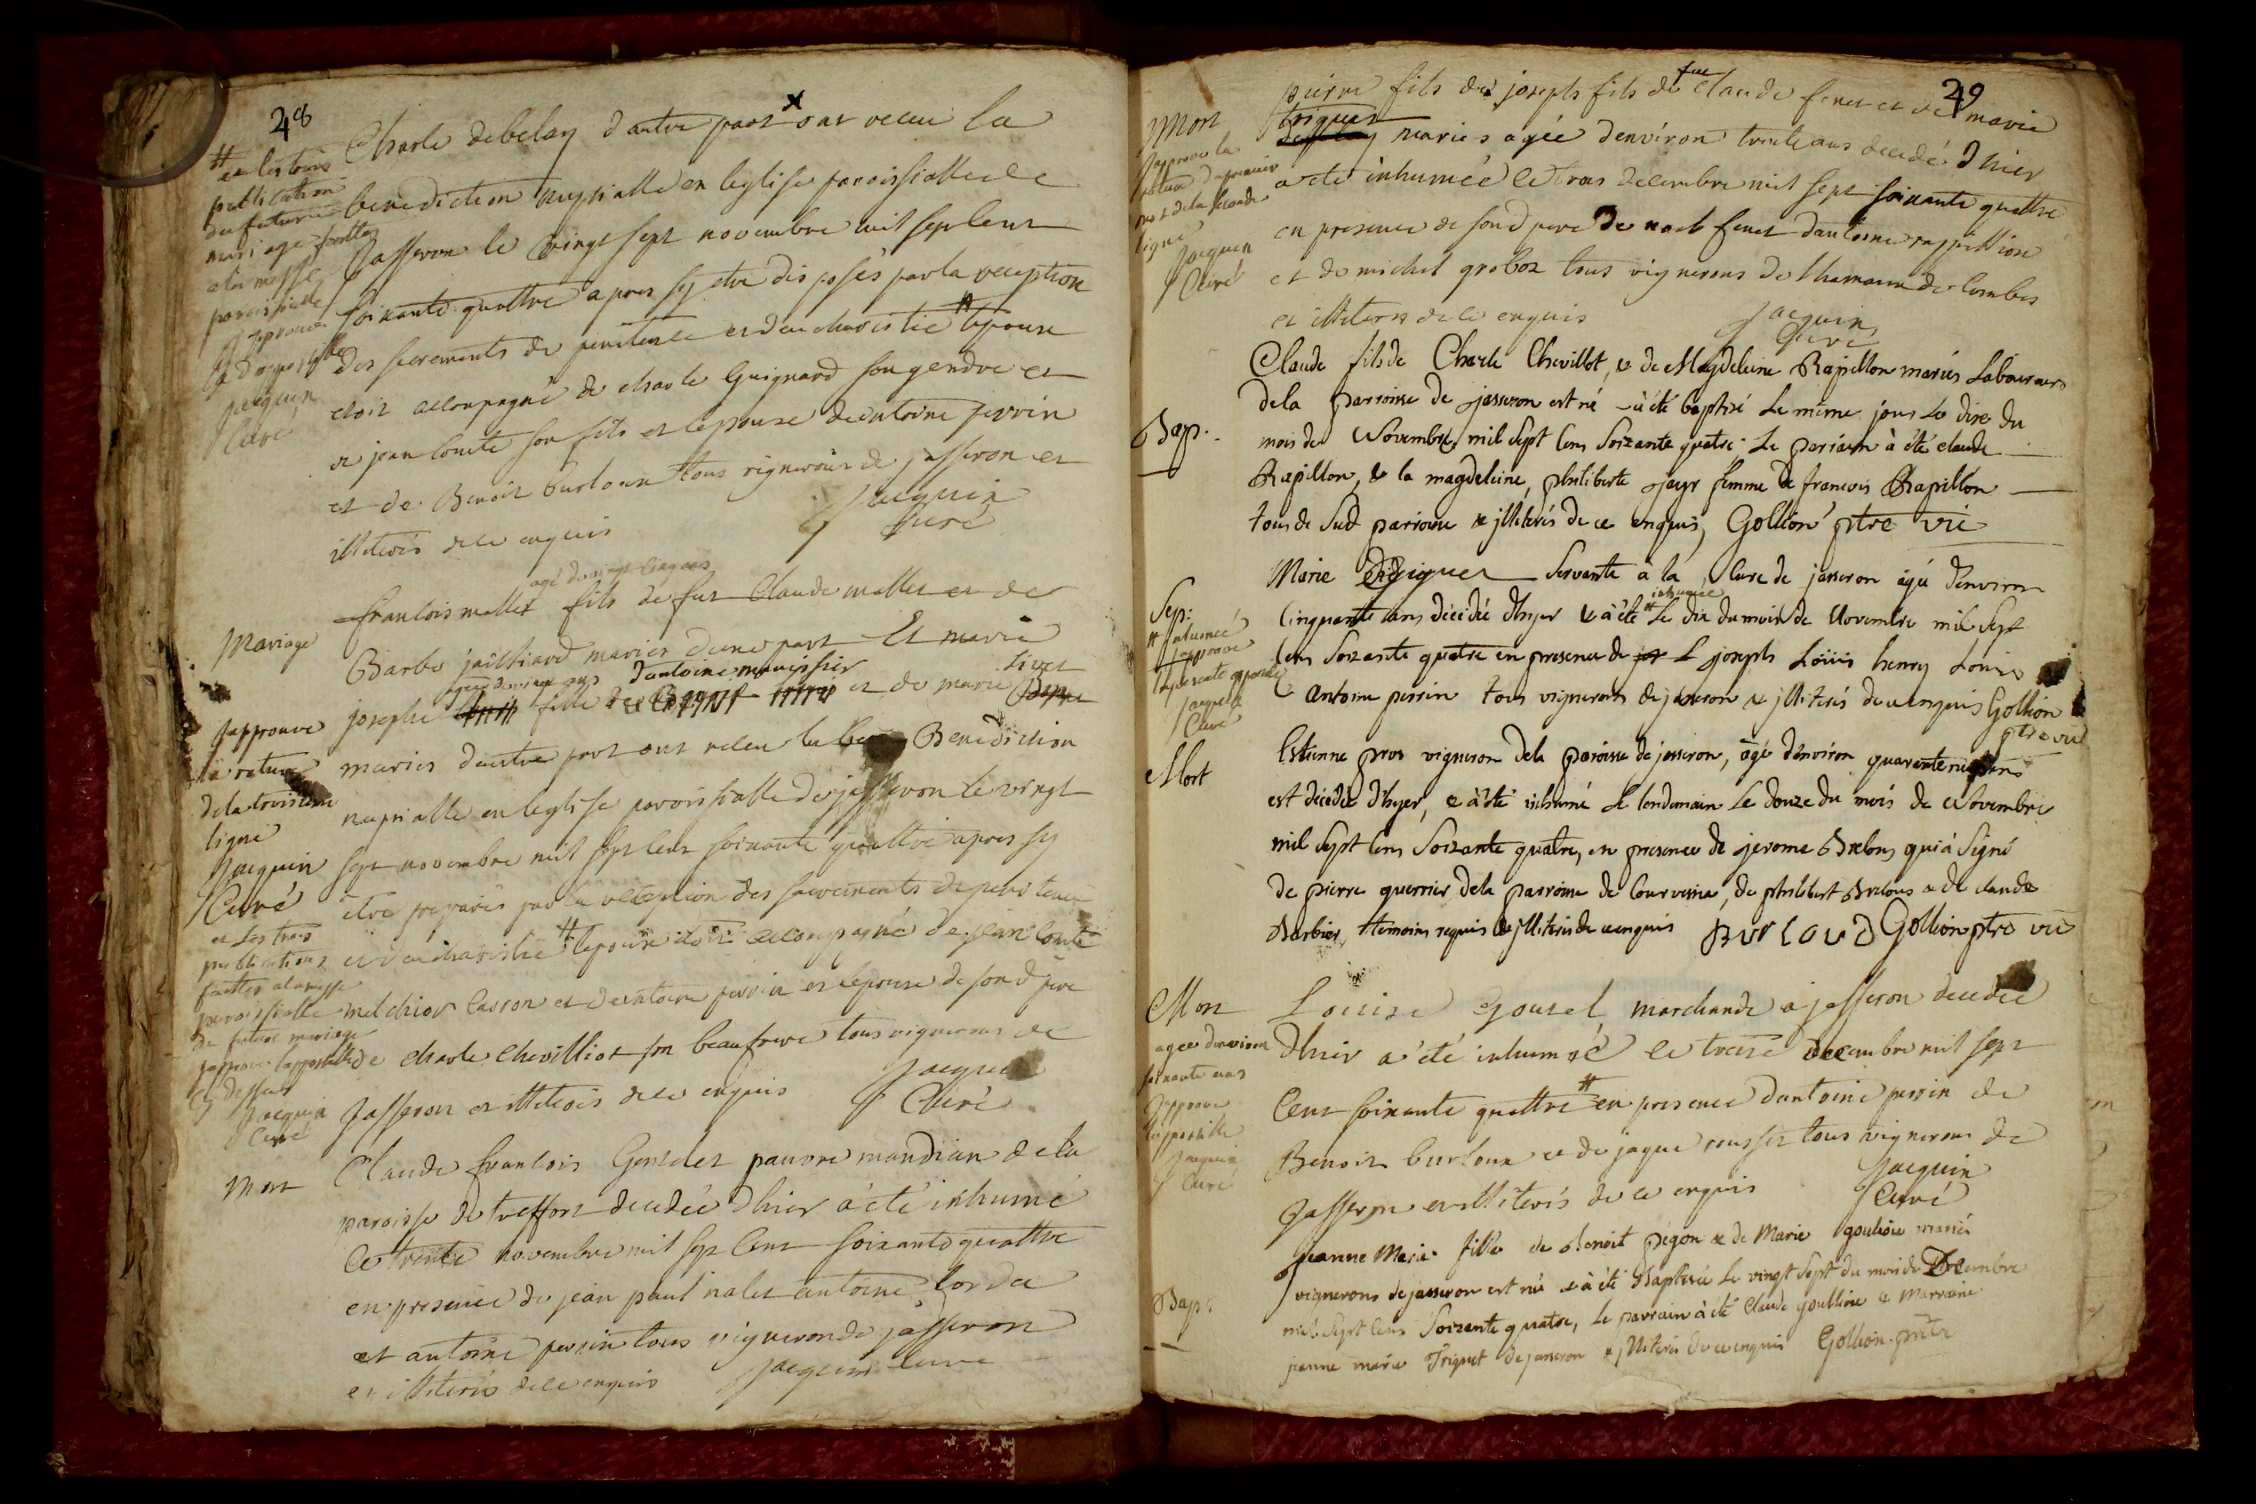 28
# et les trois
publications
du futur
mariage faittes
a la messe
paroissialle
j'approuve
l'apostille
Jacquin
Curé
Charle debelay d'autre part ont receu la
benediction nuptialle en l'eglise paroissialle de
Jasseron le vingt sept novembre mil sept cent
soixante quattre apres s'y etre disposés par la reception
des sacrements de penitence et d'eucharistie # l'epoux
etoit accompagné de charle Guignard son gendre et
de jean comte son fils et l'epouse d'antoine perrin
et de Benoit burloux tous vignerons de jasseron et
illiterés de ce enquis
Jacquin
Curé
Mariage
agé de vingt cinq ans
francois mallet fils de fut Claude mallet et de
Barbe jailliard mariés d'une part Et marie
agée de vingt ans d'antoine manissier livet
josephe fille de et de marie
mariés d'autre part ont receu la Benediction
nuptialle en l'eglise paroissialle de jasseron le vingt
sept novembre mil sept cent soixante quattre apres s'y
être preparés par la reception des sacrements de penitence
et d'eucharistie # l'epoux etoit accompagné de jean comte
melchior Casson et d'antoine perrin et l'epouse de son d pere
de charle chevilliot son beaufrere tous vignerons de
Jasseron et illiterés de ce enquis
Jacquin
Curé
J'approuve
la rature
de la troisieme
ligne
Jacquin
Curé
et les trois
publications
faittes a la messe
paroissialle
du futur mariage
j'approuve l'apostille
cy dessus
Jacquin
Curé
Mort
Claude francois Gonnet pauvre mandian de la
paroisse de treffort decedée d'hier a été inhumé
le trente novembre mil sept cent soixante quattre
en presence de jean paul nalet antoine
et antoine perrin tous vigneron de jasseron
et illiterés de ce enquis Jacquin curé
29
Mort
J'approuve la
rature du premier
mot de la seconde
ligne
Jacquin
Curé
pierre fils de joseph fils de fut claude feret et de marie
triquet
mariés agée d'environ trente ans decedé d'hier
a été inhumée le trois decembre mil sept soixante quattre
en presence de son d pere de noel feret d'antoine rappillion
et de michel grobox tous vignerons de l'hamaux de combes
et illiterés de ce enquis
Jacquin
Curé
Bap.
Claude fils de Charle Chevillot, & de Magdeleine Rapillon mariés Laboureurs
de la parroisse de jasseron est né & à été baptisé Le même jour Le dixe du
mois de Novembre mil sept Cens Soixante quatre Le parrain à été claude
Rapillon, & la magdeleine, philiberte Jayr femme de francois Rapillon
tous de Sud parroisse & jlliterés de ce enquis, Gollion ptre vic
Sep:
# inhumée
j'approuve
la presente apostille
Jacquin
Curé
Marie Triquet Servante à la Cure de jasseron agée d'environ
Cinquante ans décédée d'hyer & à été # inhumée Le dix du mois de Novembre mil Sept
Cens Soixante quatre en presence de L joseph Loüis henry Louis
antoine perrin tous vignerons de jasseron & jlliterés de ce enquis Gollion
ptre vic
Mort
Estienne pros vigneron de la paroisse de jasseron, agé d'environ quarante
est décédé d'hyer, & à été inhumé Le lendemain Le douze du mois de Novembre
mil Sept Cens Soixante quatre, en presence de jerome Brelons qui à Signé
de pierre guerrier de la parroisse de Courvenia, de philibert Brelons & de claude
Barbier, témoins requis & jlliterés de ce enquis BURLOUD Gollion ptre vic
Mort
agée d'environ
soixante ans
J'approuve
l'apostille
Jacquin
Curé
Louise gousel marchande a jasseron decedée
d'hier a été inhumée le treize decembre mil sept
Cent soixante quattre # en presence d'antoine perrin de
Benoit burloux et de jaque rousset tous vignerons de
Jasseron et illiterés de ce enquis
Jacquin
Curé
Bap:
jeanne Marie fille de Benoit pégon & de Marie goulion mariés
vignerons de jasseron est née & à été Baptisée Le vingt Sept du mois de Decembre
mil Sept Cens Soixante quatre, Le parrain à été Claude goullion & Marraine
jeanne marie Triquet de jasseron & jlliterés de ce enquis Gollion ptre